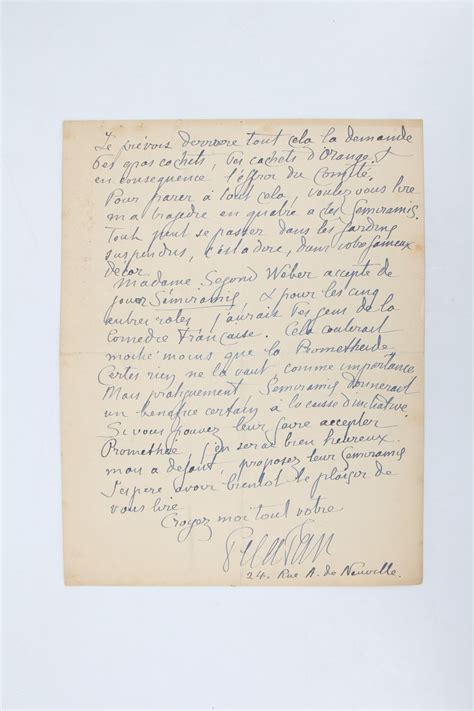 Je prévois derriere tout cela la demande
des gros cachets, des cachets d'Orange, &
en consequence l'effroi du Comité.
Pour parer à tout cela, voulez vous lire
ma tragedie en quatre actes Semiramis.
Tout peut se passer dans les jardins
suspendus, c'est a dire, dans votre fameux
décor.
Madame Segond Weber accepte de
jouer Sémiramis, & pour les cinq
autres roles j'aurais des gens de la
Comedie Française. Cela couterait
moitié moins que la Prometheide
Certes rien ne la vaut comme importance
Mais pratiquement Semiramis donnerait
un benefice certain à la caisse d'initiative.
Si vous pouvez leur faire accepter
Promethée j'en serai bien heureux.
mais a defaut, proposez leur Semiramis
J'espere avoir bientot le plaisir de
vous lire
Croyez moi tout votre
Peladan
24. Rue A. de Neuville.